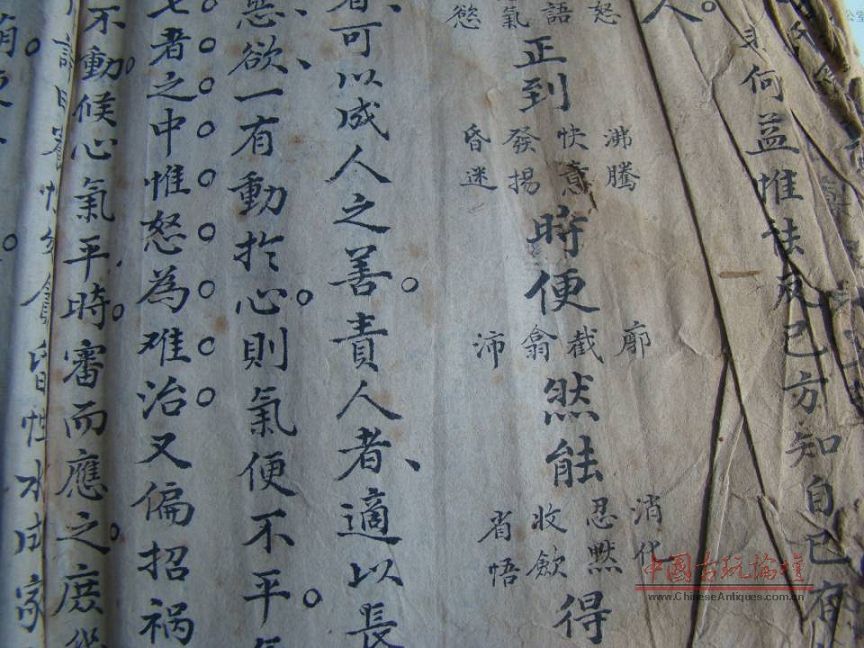 何益惟能反己方知自己有
人。
怒 語 氣 慾
正到
沸騰 快意 發揚 昏迷
時便
廓 截 翕 沛
然能
消化 忍黙 收歛 省悟
得
者、可以成人之善責人者、適以長
惡欲、一有動於心。則氣便不平。
七者之中惟怒為难治又偏招祸
不動。候心氣平時。審而應之。庶幾
性水成家
中國古玩論壇
www.ChineseAntiques.com.cn